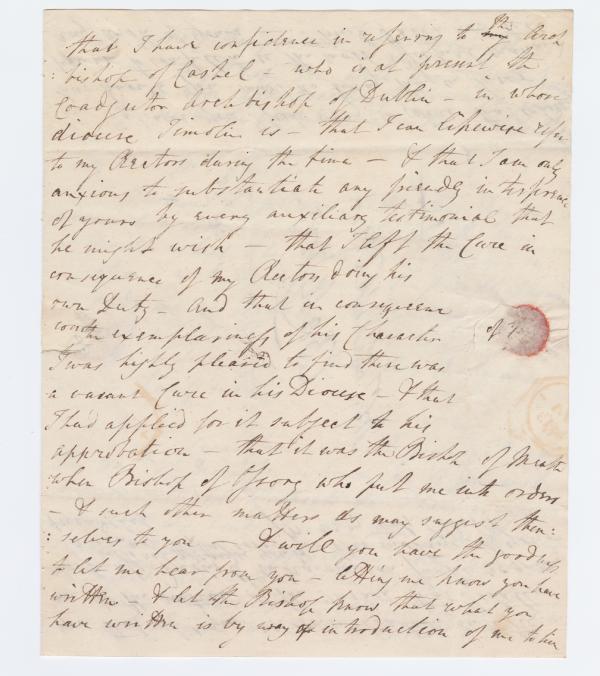 that I have confidence in referring to the Arch
: bishop of Cashel – who is at present the
Coadjutor Archbishop of Dublin – in whose
diocese Timolin is – that I can likewise refer
to my Rectors during the time – & that I am only
anxious to substantiate any friendly interference
of yours by every auxiliary testimonial that
he might wish – that I left the Cure in
consequence of my Rectors doing his
own Duty – and that in consequence
of the exemplariness of his Character
I was highly pleased to find there was
a vacant Cure in his Diocese – & that
I had applied for it subject to his
approbation – that it was the Bishop of Meath
when Bishop of Ossory who put me into orders
– & such other matters as may suggest them:
: selves to you – & will you have the goodness
to let me hear from you – letting me know you have
written – & let the Bishop know that what you
have written is by way of introduction of me to him